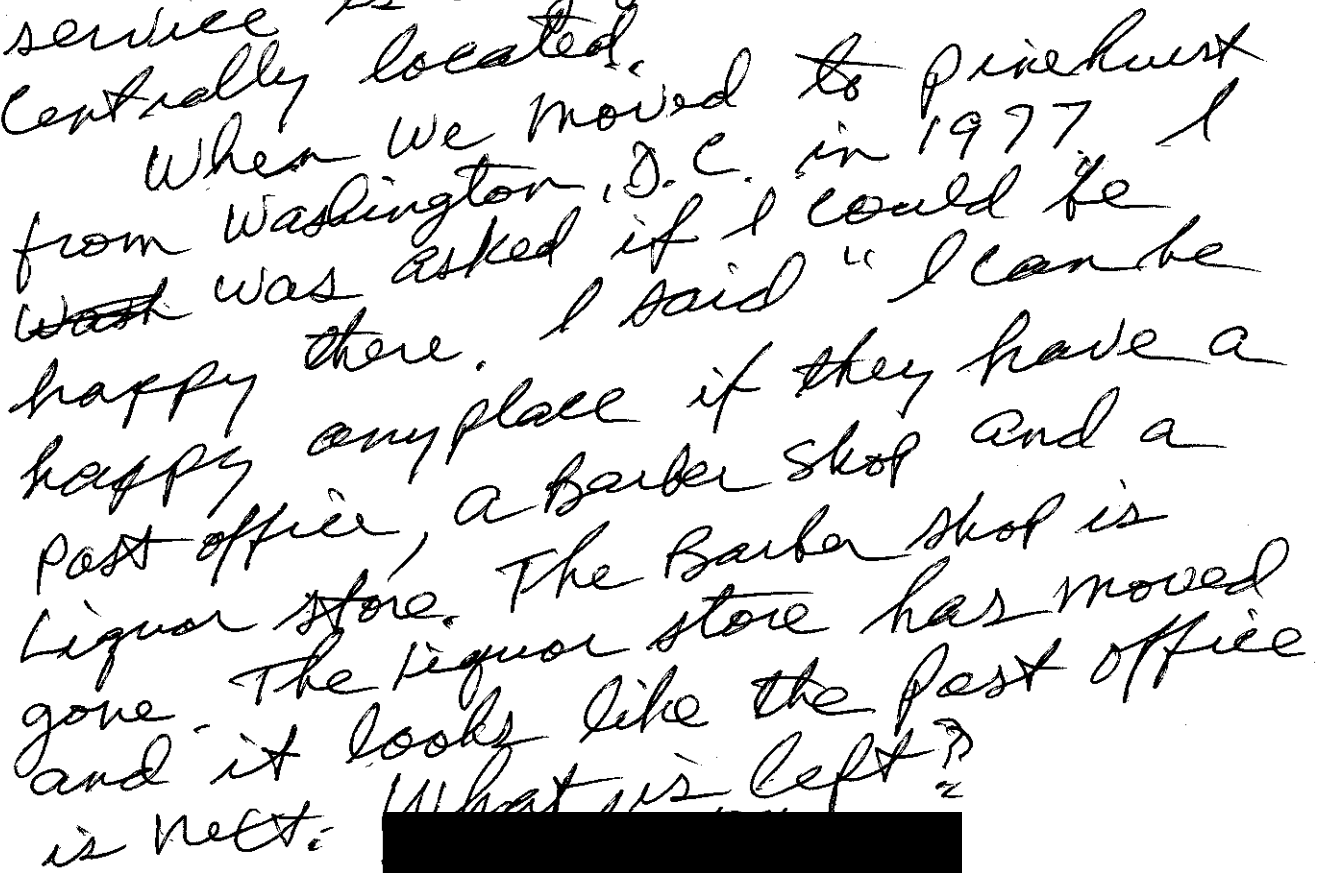 service is
Centrally located.
When we moved to pinehurst
from Washington, D.C. in 1977 I
Wash was asked if I could be
happy there. I said "I can be
happy anyplace if they have a
Post office, a Barber Shop and a
Liquor store. The Barber shop is
gone. The Liquor store has moved
and it looks like the Post office
is next. What is left?